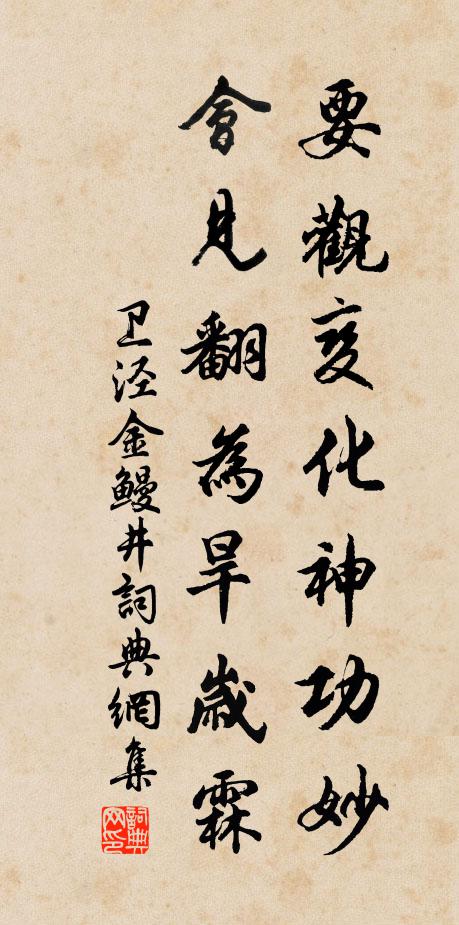 要觀变化神功妙
會見翻為旱歲霖
卫泾金鳗井詞典網集
詞典网印